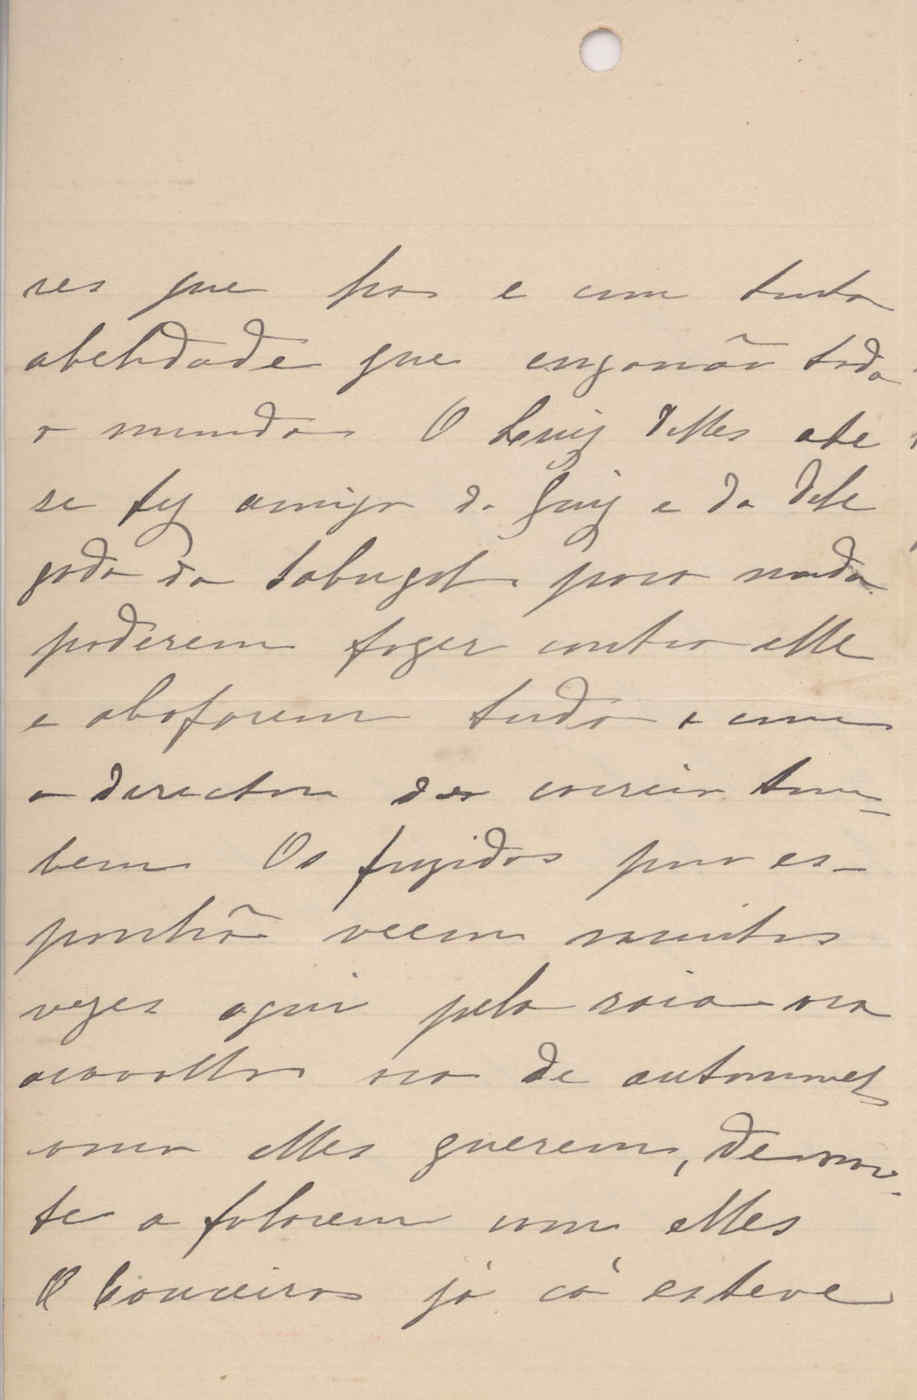 res que ha e com tanta
abelidade que enganão todo
o mundo O Luiz Telles ate
se fez amigo do Juiz e do dele
gado do Sabugal para nada
poderem fazer contra elle
e abafarem tudo e com
o director do correio tam-
bem Os fugidos para es-
panhã veem muitas
vezes aqui pela raia ora
acavallo ora de automovel
como elles querem, de noi-
te a falarem com elles
O Couceiro já cá esteve